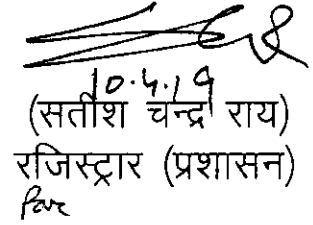 10.4.19
(सतीश चन्द्र राय)
रजिस्ट्रार (प्रशासन)